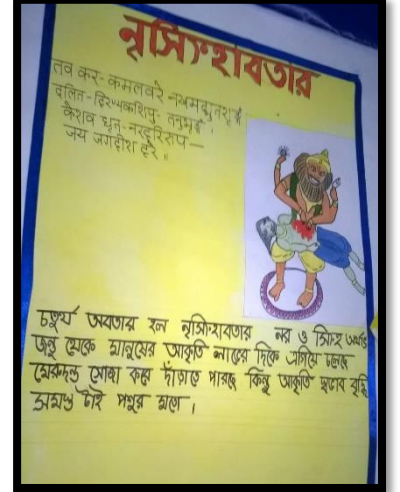 নৃসিংহাবতার
तव कर-कमलवरे नखमद्भुतशृङ्गं
दलित-हिरण्यकशिपु-तनुभृङ्गं ।
केशव धृत-नरहरिरूप—
जय जगदीश हरे ॥
চতুর্থ অবতার হল নৃসিংহাবতার নর ও সিংহ অর্থাৎ
জন্তু থেকে মানুষের আকৃতি লাভের দিকে এগিয়ে চলেছে
মেরুদন্ড সোজা করে দাঁড়াতে পারছে কিন্তু আকৃতি স্বভাব বুদ্ধি
সমস্ত টাই পশুর মতো ।